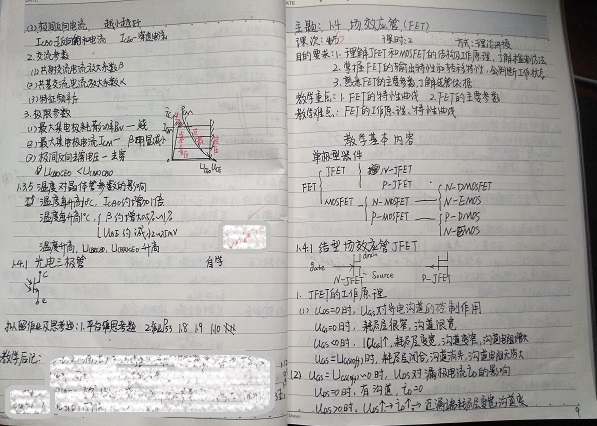 (3) 极间反向电流 越小越好
ICBO-反向饱和电流 ICEO-穿透电流
2. 交流参数
(1) 共射交流电流放大系数β
(2) 共基交流电流放大系数α
(3) 特征频率
3. 极限参数
(1) 最大集电极耗散功率PCM
(2) 最大集电极电流ICM β明显减小
(3) 极间反向击穿电压
UCEO UCE
1.3.5 温度对晶体管参数的影响
温度每升高1℃, β约增大0.5%~1%
温度升高, UCBO, UCEO升高
1.4.1 光电三极管 自学
c
e
教学后记:
主题: 1.4 场效应管(FET)
课次: 课时: 2 方式: 理论讲授
目的要求: 1. 理解JFET和MOSFET的结构及工作原理, 了解检测方法
2. 掌握FET的输出特性和转移特性, 会判断工作状态
3. 熟悉FET的主要参数, 了解选管依据
教学重点: 1. FET的特性曲线 2. FET的主要参数
教学难点: FET的工作原理、特性曲线
教学基本内容
单极型器件
JFET N-JFET
P-JFET
FET
MOSFET N-MOSFET N-DMOSFET
N-EMOS
P-MOSFET P-DMOS
1.4.1 结型场效应管JFET
drain
gate
Source
N-JFET P-JFET
1. JFET的工作原理
(1) UDS=0时, UGS对导电沟道的控制作用
UGS=0时, 耗尽层很窄, 沟道很宽
UGS<0时, |UGS|↑, 耗尽层变宽, 沟道变窄, 沟道电阻增大
UGS=UGS(off)时, 耗尽层闭合, 沟道消失, 沟道电阻无穷大
(2) UGS=UGS(off)~0时, UDS对漏极电流iD的影响
UDS=0时, 有沟道, iD=0
UDS>0时, UDS↑→iD↑→近漏端耗尽层变宽, 沟道窄
9